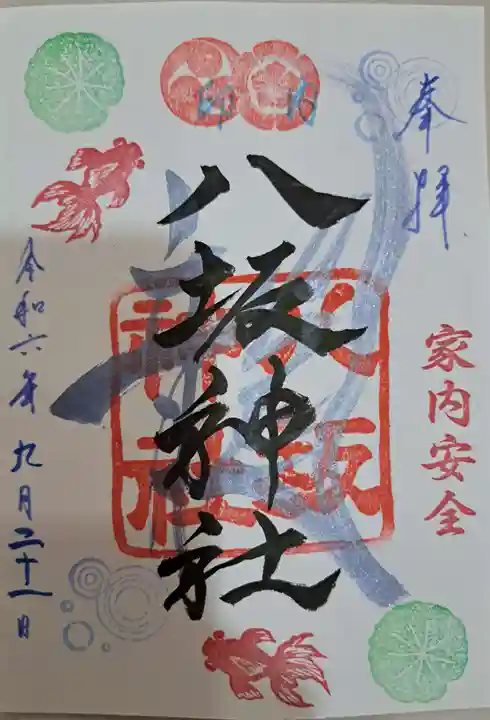 奉拝
家内安全
八坂神社
八坂神社
令和六年九月二十一日